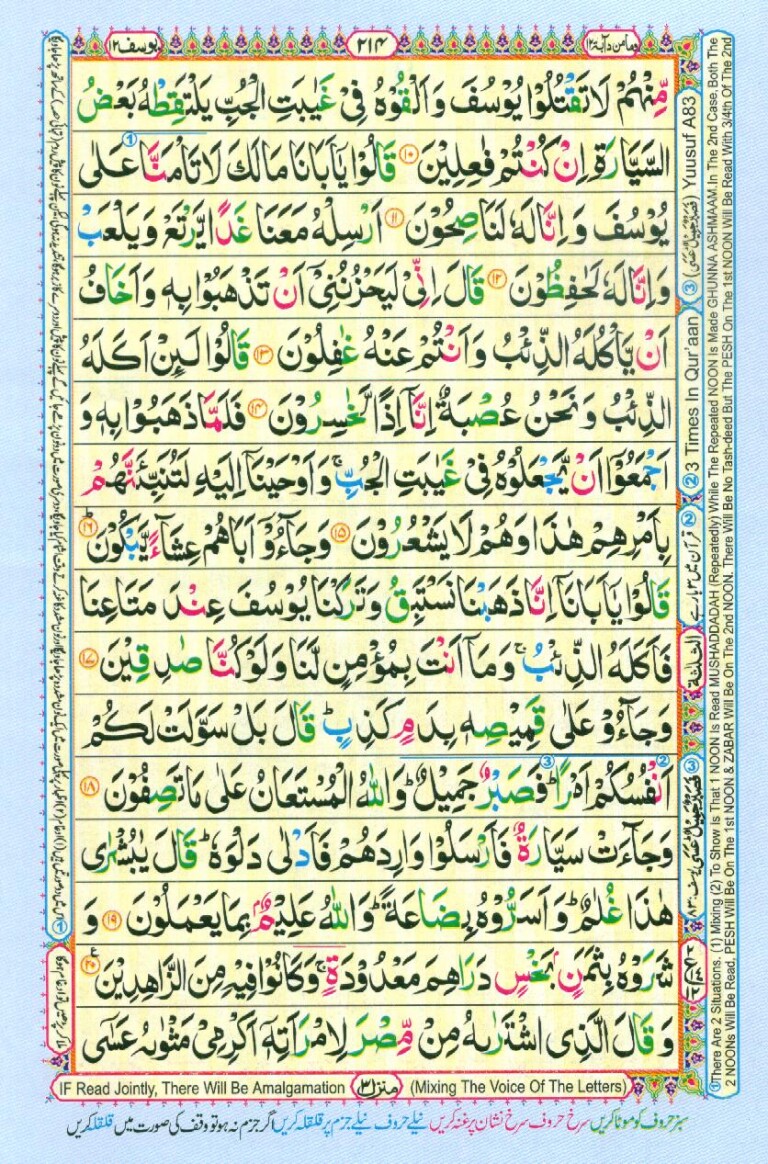 وما من دآبة ١٢
٢١٤
يوسف ١٢
مِّنْهُمْ لَا تَقْتُلُوْا يُوْسُفَ وَاَلْقُوْهُ فِيْ غَيٰبَتِ الْجُبِّ يَلْتَقِطْهُ بَعْضُ
السَّيَّارَةِ اِنْ كُنْتُمْ فٰعِلِيْنَ ١٠ قَالُوْا يٰٓاَبَانَا مَالَكَ لَا تَاْمَنَّا عَلٰى
يُوْسُفَ وَاِنَّا لَهٗ لَنٰصِحُوْنَ ١١ اَرْسِلْهُ مَعَنَا غَدًا يَّرْتَعْ وَيَلْعَبْ
وَاِنَّا لَهٗ لَحٰفِظُوْنَ ١٢ قَالَ اِنِّيْ لَيَحْزُنُنِيْٓ اَنْ تَذْهَبُوْا بِهٖ وَاَخَافُ
اَنْ يَّاْكُلَهُ الذِّئْبُ وَاَنْتُمْ عَنْهُ غٰفِلُوْنَ ١٣ قَالُوْا لَئِنْ اَكَلَهُ
الذِّئْبُ وَنَحْنُ عُصْبَةٌ اِنَّآ اِذًا لَّخٰسِرُوْنَ ١٤ فَلَمَّا ذَهَبُوْا بِهٖ وَ
اَجْمَعُوْٓا اَنْ يَّجْعَلُوْهُ فِيْ غَيٰبَتِ الْجُبِّ ۚ وَاَوْحَيْنَآ اِلَيْهِ لَتُنَبِّئَنَّهُمْ
بِاَمْرِهِمْ هٰذَا وَهُمْ لَا يَشْعُرُوْنَ ١٥ وَجَآءُوْٓ اَبَاهُمْ عِشَآءً يَّبْكُوْنَ ١٦ ط
قَالُوْا يٰٓاَبَانَآ اِنَّا ذَهَبْنَا نَسْتَبِقُ وَتَرَكْنَا يُوْسُفَ عِنْدَ مَتَاعِنَا
فَاَكَلَهُ الذِّئْبُ ۚ وَمَآ اَنْتَ بِمُؤْمِنٍ لَّنَا وَلَوْ كُنَّا صٰدِقِيْنَ ١٧
وَجَآءُوْ عَلٰى قَمِيْصِهٖ بِدَمٍ كَذِبٍ ط قَالَ بَلْ سَوَّلَتْ لَكُمْ
اَنْفُسُكُمْ اَمْرًا ط فَصَبْرٌ جَمِيْلٌ ط وَاللّٰهُ الْمُسْتَعَانُ عَلٰى مَا تَصِفُوْنَ ١٨
وَجَآءَتْ سَيَّارَةٌ فَاَرْسَلُوْا وَارِدَهُمْ فَاَدْلٰى دَلْوَهٗ ط قَالَ يٰبُشْرٰى
هٰذَا غُلٰمٌ ط وَاَسَرُّوْهُ بِضَاعَةً ط وَاللّٰهُ عَلِيْمٌۢ بِمَا يَعْمَلُوْنَ ١٩ وَ
شَرَوْهُ بِثَمَنٍۢ بَخْسٍ دَرَاهِمَ مَعْدُوْدَةٍ ۚ وَكَانُوْا فِيْهِ مِنَ الزَّاهِدِيْنَ ٢٠ ع
وَقَالَ الَّذِي اشْتَرٰىهُ مِنْ مِّصْرَ لِامْرَاَتِهٖٓ اَكْرِمِيْ مَثْوٰىهُ عَسٰٓى
IF Read Jointly, There Will Be Amalgamation
منزل ٣
(Mixing The Voice Of The Letters)
سبز حروف کو موٹا کریں سرخ حروف سرخ نشان پر غنہ کریں نیلے حروف نیلے جزم پر قلقلہ کریں اگر جزم نہ ہو تو وقف کی صورت میں قلقلہ کریں
② 3 Times In Qur'aan ③ Yuusuf A83
② قرآن میں ٣ بار ہے
الثلثة
①There Are 2 Situations. (1) Mixing (2) To Show Is That 1 NOON Is Read MUSHADDADAH (Repeatedly) While The Repeated NOON Is Made GHUNNA ASHMAAM.In The 2nd Case, Both The
2 NOONs Will Be Read, PESH Will Be On The 1st NOON & ZABAR Will Be On The 2nd NOON. There Will Be No Tash-deed But The PESH On The 1st NOON Will Be Read With 3/4th Of The 2nd